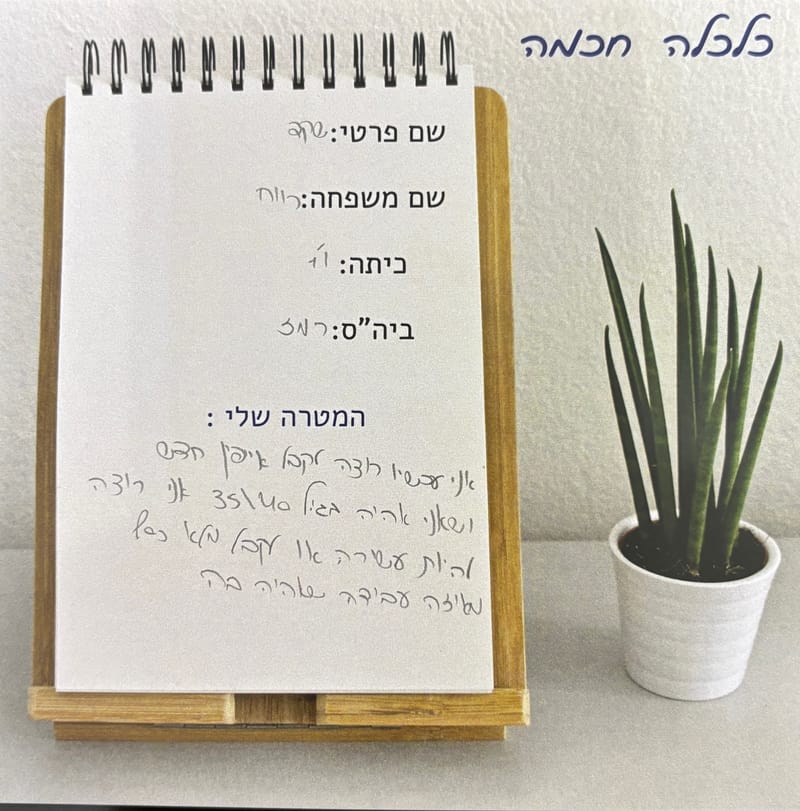 כלכלה חכמה
שם פרטי: שקד
שם משפחה: רווח
כיתה: ו'1
ביה"ס: רמז
המטרה שלי :
אני עכשיו רוצה לקבל אייפון חדש
ושאני אהיה בגיל 35\40 אני רוצה
להיות עשירה או לקבל מלא כסף
מאיזה עבודה שאהיה בה